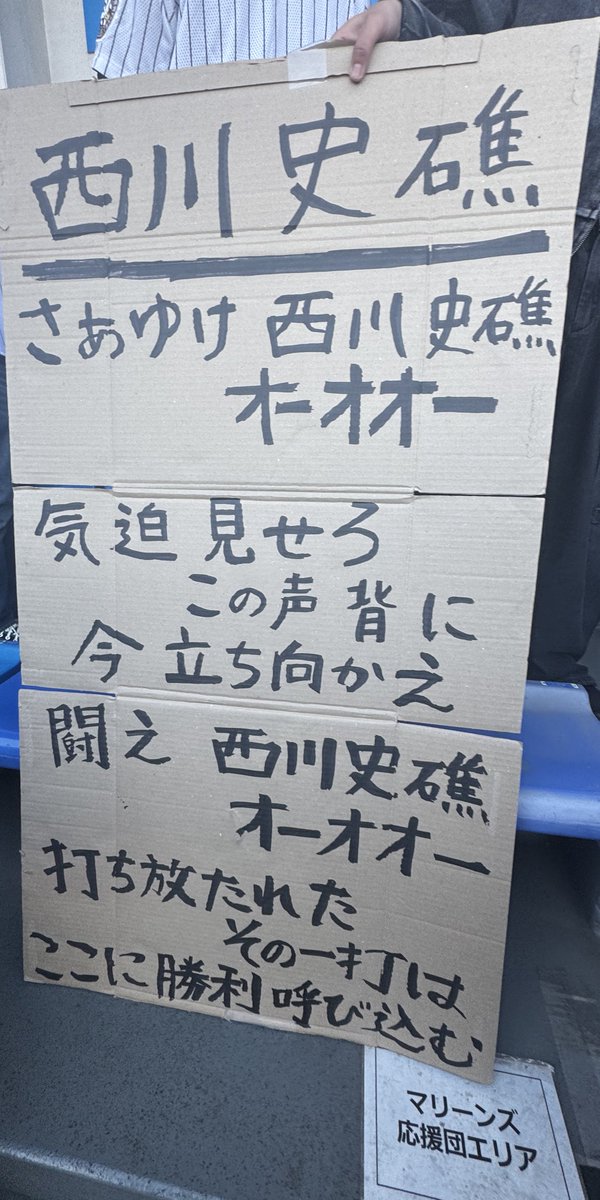 西川史礁
さあゆけ 西川史礁
オーオオー
気迫見せろ
この声背に
今立ち向かえ
闘え 西川史礁
オーオオー
打ち放たれた
その一打は
ここに勝利呼び込む
マリーンズ
応援団エリア